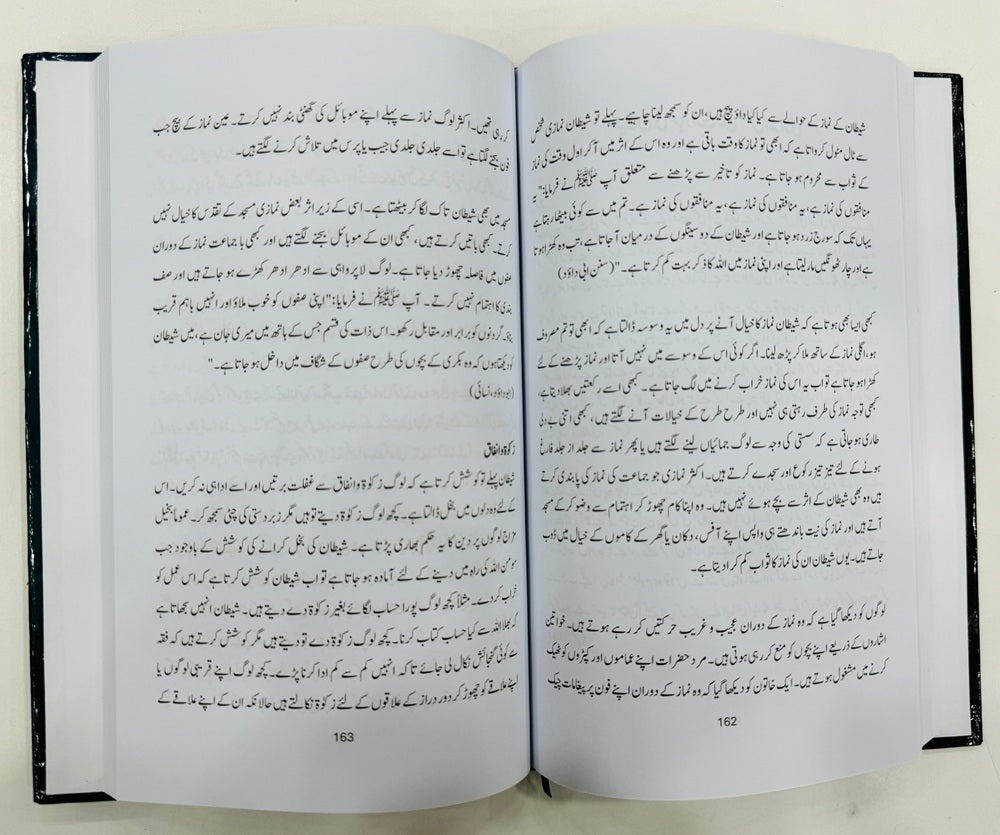 شیطان کے نماز کے حوالے سے کیا کیا داؤ پیچ ہیں، ان کو سمجھ لینا چاہیے۔ پہلے تو شیطان نمازی شخص
سے ٹال مٹول کرواتا ہے کہ ابھی تو نماز کا وقت باقی ہے اور وہ اس کے اثر میں آکر اول وقت کی نماز
کے ثواب سے محروم ہو جاتا ہے۔ نماز کو تاخیر سے پڑھنے سے متعلق آپ ﷺ نے فرمایا: "یہ
منافقوں کی نماز ہے، یہ منافقوں کی نماز ہے، یہ منافقوں کی نماز ہے۔ تم میں سے کوئی بیٹھا رہتا ہے
یہاں تک کہ سورج زرد ہو جاتا ہے اور شیطان کے دو سینگوں کے درمیان آ جاتا ہے، تب وہ کھڑا ہوتا
ہے اور چار ٹھونگیں مار لیتا ہے اور اپنی نماز میں اللہ کا ذکر بہت کم کرتا ہے۔" (سنن ابی داؤد)
کبھی ایسا بھی ہوتا ہے کہ شیطان نماز کا خیال آنے پر دل میں یہ وسوسہ ڈالتا ہے کہ ابھی تو تم مصروف
ہو، اگلی نماز کے ساتھ ملا کر پڑھ لینا۔ اگر کوئی اس کے وسوسے میں نہیں آتا اور نماز پڑھنے کے لئے
کھڑا ہو جاتا ہے تو اب یہ اس کی نماز خراب کرنے میں لگ جاتا ہے۔ کبھی اسے رکعتیں بھلا دیتا ہے،
کبھی توجہ نماز کی طرف رہتی ہی نہیں اور طرح طرح کے خیالات آنے لگتے ہیں، کبھی اتنی بے دلی
طاری ہو جاتی ہے کہ سستی کی وجہ سے لوگ جمائیاں لینے لگتے ہیں یا پھر نماز سے جلد از جلد فارغ
ہونے کے لئے تیز تیز رکوع اور سجدے کرتے ہیں۔ اکثر نمازی جو جماعت کی نماز کی پابندی کرتے
ہیں وہ بھی شیطان کے اثر سے بچے ہوئے نہیں ہیں۔ وہ اپنا کام چھوڑ کر اہتمام سے وضو کر کے مسجد
آتے ہیں اور نماز کی نیت باندھتے ہی واپس اپنے آفس، دکان یا گھر کے کاموں کے خیال میں ڈوب
جاتے ہیں۔ یوں شیطان ان کی نماز کا ثواب کم کرا دیتا ہے۔
لوگوں کو دیکھا گیا ہے کہ وہ نماز کے دوران عجیب و غریب حرکتیں کر رہے ہوتے ہیں۔ خواتین
اشاروں کے ذریعے اپنے بچوں کو منع کر رہی ہوتی ہیں۔ مرد حضرات اپنے عماموں اور کپڑوں کو ٹھیک
کرنے میں مشغول ہوتے ہیں۔ ایک خاتون کو دیکھا گیا کہ وہ نماز کے دوران اپنے فون پر پیغامات چیک
162
کر رہی تھیں۔ اکثر لوگ نماز سے پہلے اپنے موبائل کی گھنٹی بند نہیں کرتے۔ عین نماز کے بیچ جب
فون بجنے لگتا ہے تو اسے جلدی جلدی جیب یا پرس میں تلاش کرنے لگتے ہیں۔
مسجد میں بھی شیطان تاک لگا کر بیٹھتا ہے۔ اسی کے زیر اثر بعض نمازی مسجد کے تقدس کا خیال نہیں
کرتے۔ کبھی باتیں کرتے ہیں، کبھی ان کے موبائل بجنے لگتے ہیں اور کبھی با جماعت نماز کے دوران
صفوں میں فاصلہ چھوڑ دیا جاتا ہے۔ لوگ لا پرواہی سے ادھر ادھر کھڑے ہو جاتے ہیں اور صف
بندی کا اہتمام نہیں کرتے۔ آپ ﷺ نے فرمایا: "اپنی صفوں کو خوب ملاؤ اور انہیں باہم قریب
گردنوں کو برابر اور مقابل رکھو۔ اس ذات کی قسم جس کے ہاتھ میں میری جان ہے، میں شیطان
کو دیکھتا ہوں کہ وہ بکری کے بچوں کی طرح صفوں کے شگاف میں داخل ہو جاتا ہے۔"
(ابو داؤد، نسائی)
زکوٰۃ و انفاق
شیطان پہلے تو کوشش کرتا ہے کہ لوگ زکوٰۃ و انفاق سے غفلت برتیں اور اسے ادا ہی نہ کریں۔ اس
کے لئے وہ دلوں میں بخل ڈالتا ہے۔ کچھ لوگ زکوٰۃ دیتے تو ہیں مگر زبردستی کی چٹی سمجھ کر۔ عموماً بخیل
مزاج لوگوں پر دین کا یہ حکم بھاری پڑتا ہے۔ شیطان کی بخل کرانے کی کوشش کے باوجود جب
مومن اللہ کی راہ میں دینے کے لئے آمادہ ہو جاتا ہے تو اب شیطان کوشش کرتا ہے کہ اس عمل کو
خراب کر دے۔ مثلاً کچھ لوگ پورا حساب لگائے بغیر زکوٰۃ دے دیتے ہیں۔ شیطان انہیں سجھاتا ہے
کہ بھلا اللہ سے کیا حساب کتاب کرنا۔ کچھ لوگ زکوٰۃ دے تو دیتے ہیں مگر کوشش کرتے ہیں کہ فقہ
سے کوئی گنجائش نکال لی جائے تاکہ انہیں کم سے کم ادا کرنا پڑے۔ کچھ لوگ اپنے قریبی لوگوں یا
اپنے علاقے کو چھوڑ کر دور دراز کے علاقوں کے لئے زکوٰۃ نکالتے ہیں حالانکہ ان کے اپنے علاقے کے
163